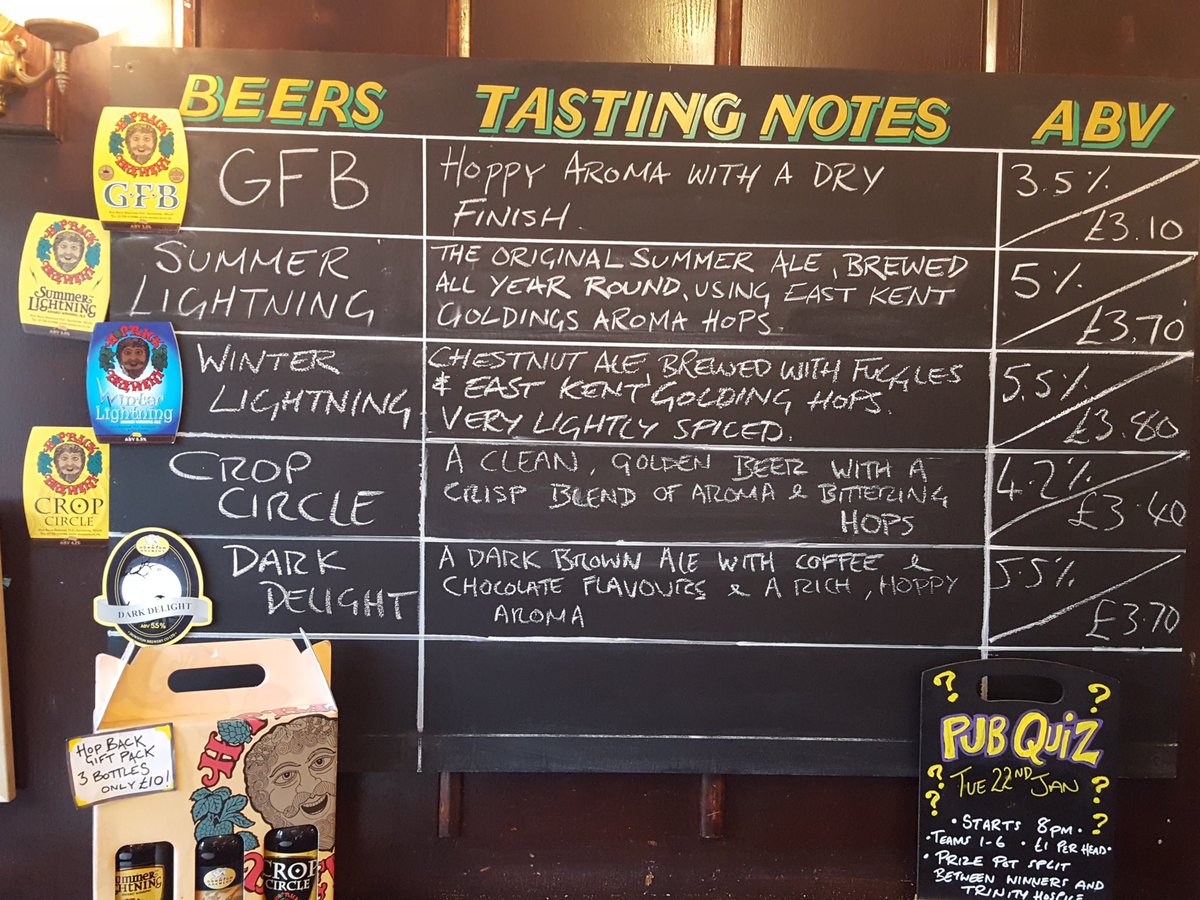 BEERS
TASTING NOTES
ABV
GFB
HOPPY AROMA WITH A DRY
FINISH.
3.5%
£3.10
SUMMER
LIGHTNING
THE ORIGINAL SUMMER ALE, BREWED
ALL YEAR ROUND, USING EAST KENT
GOLDINGS AROMA HOPS.
5%
£3.70
WINTER
LIGHTNING
CHESTNUT ALE, BREWED WITH FUGGLES
& EAST KENT GOLDING HOPS.
VERY LIGHTLY SPICED.
5.5%
£3.80
CROP
CIRCLE
A CLEAN, GOLDEN BEER WITH A
CRISP BLEND OF AROMA & BITTERING
HOPS
4.2%
£3.40
DARK
DELIGHT
A DARK BROWN ALE WITH COFFEE &
CHOCOLATE FLAVOURS & A RICH, HOPPY
AROMA
5.5%
£3.70
HOP BACK
BREWERY
G·F·B
ABV 3.5%
HOP BACK
BREWERY
Summer
Lightning
ABV 5.0%
HOP BACK
BREWERY
Winter
Lightning
ABV 5.5%
HOP BACK
BREWERY
CROP
CIRCLE
ABV 4.2%
DARK DELIGHT
ABV 5.5%
HOP BACK
GIFT PACK
3 BOTTLES
ONLY £10!
Summer
LIGHTNING
CROP
CIRCLE
PUB QUIZ
TUE 22ND JAN
• STARTS 8PM •
• TEAMS 1-6 • £1 PER HEAD •
• PRIZE POT SPLIT
BETWEEN WINNERS AND
TRINITY HOSPICE